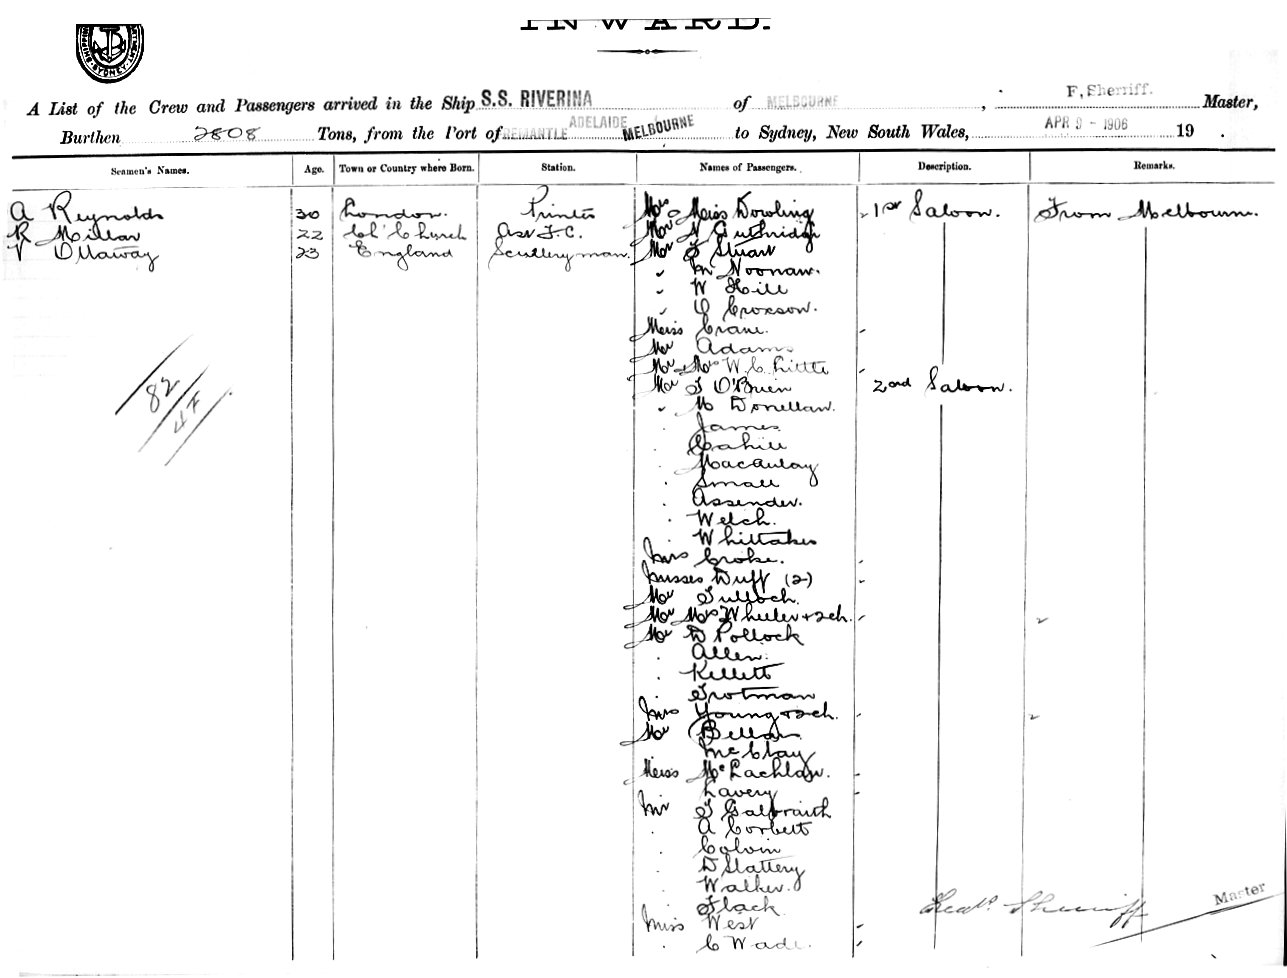 INWARD.
SHIPPING SYDNEY
A List of the Crew and Passengers arrived in the Ship S.S. RIVERINA of MELBOURNE, F. Sherriff. Master,
Burthen 2808 Tons, from the Port of FREMANTLE ADELAIDE MELBOURNE to Sydney, New South Wales, APR 3 - 1906 19 .
Seamen's Names. Age. Town or Country where Born. Station. Names of Passengers. Description. Remarks.
A Reynolds 30 London. Printer Mrs Miss Dowling 1st Saloon. From Melbourne.
R Millar 22 Ch' Church Ast F.C. Mr N Guthridge
V Ottaway 23 England Scullery man. Mr F Stuart
" M Noonan.
" W Hill
" C Croxson.
Miss Crane.
Mr Adams
Mr + Mrs W. C. Little
Mr J O'Brien 2nd Saloon.
" M Donellan.
. James.
. Cahill
. Macaulay
. Small
. Assender.
. Welch.
. Whittaker
Mrs Croke.
Misses Duff (2)
Mr Tulloch.
Mr Mrs Wheeler + 2 ch.
Mr D Pollock
. Allen.
. Kellett
. Trotman
Mrs Young + 2 ch.
Mr Bellair
McClay
Miss McLachlan.
Lavery
Mr T Galbraith
. A Corbett
. Colvin
. D Slattery
. Walker.
. Flack
Miss West
. C Wade.
82
47
Sherriff Master